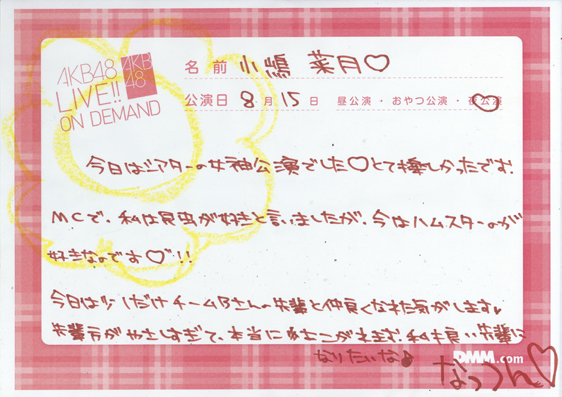 AKB48
LIVE!!
ON DEMAND
AKB
48
名前 小嶋 菜月♡
公演日 8月15日 昼公演・おやつ公演・夜公演
今日はシアターの女神公演でした♡とても楽しかったです。
MCで、私は昆虫が好きと言いましたが、今はハムスターのが
好きなのです♡!!
今日は少しだけチームBさんの先輩と仲良くなれた気がします♥
先輩方がやさしすぎて、本当に あこがれます。私も良い先輩に
なりたいな♪
DMM.com
なっつん♡